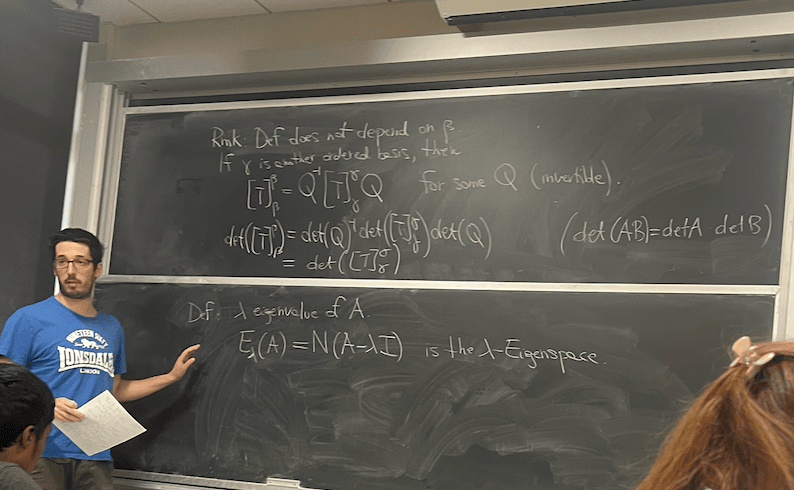 Rmk: Def does not depend on β
If γ is another ordered basis, then
[T]_β^β = Q^-1 [T]_γ^γ Q for some Q (invertible).
det([T]_β^β) = det(Q)^-1 det([T]_γ^γ) det(Q) (det(AB)=detA detB)
= det([T]_γ^γ)
Def: λ eigenvalue of A.
E_λ(A) = N(A-λI) is the λ-Eigenspace.
LONSDALE
LONDON